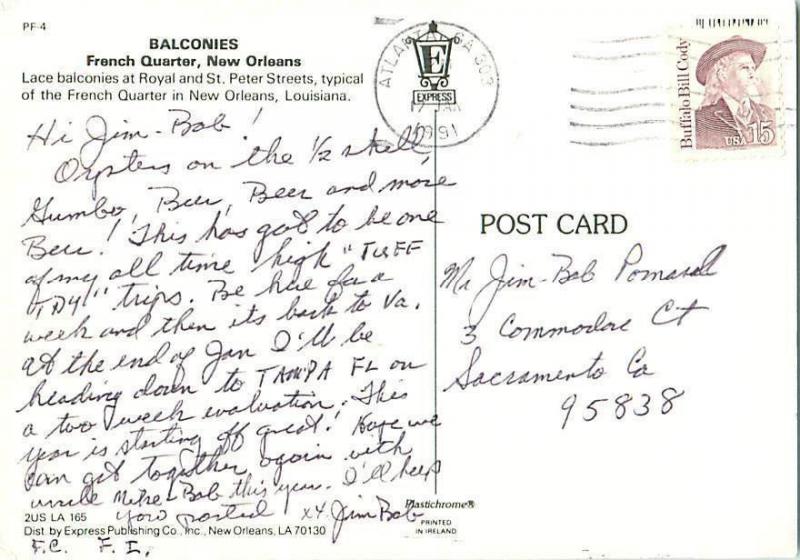 PF-4
BALCONIES
French Quarter, New Orleans
Lace balconies at Royal and St. Peter Streets, typical
of the French Quarter in New Orleans, Louisiana.
Hi Jim-Bob!
Oysters on the 1/2 shell,
Gumbo, Beer, Beer and more
Beer! This has got to be one
of my all time high "TUFF
TDY" trips. Be here for a
week and then its back to Va.
at the end of Jan I'll be
heading down to TAMPA FL on
a two week evaluation. This
year is starting off great! Hope we
can get together again with
uncle Mike-Bob this year. I'll keep
you posted x4 Jim Bob
2US LA 165
Dist. by Express Publishing Co., Inc., New Orleans, LA 70130
F.C. F.I.
E
EXPRESS
ATLANTA, GA 303
1991
Buffalo Bill Cody
USA 15
POST CARD
Mr Jim-Bob
3 Commodore Ct
Sacramento Ca
95838
Plastichrome®
PRINTED
IN IRELAND